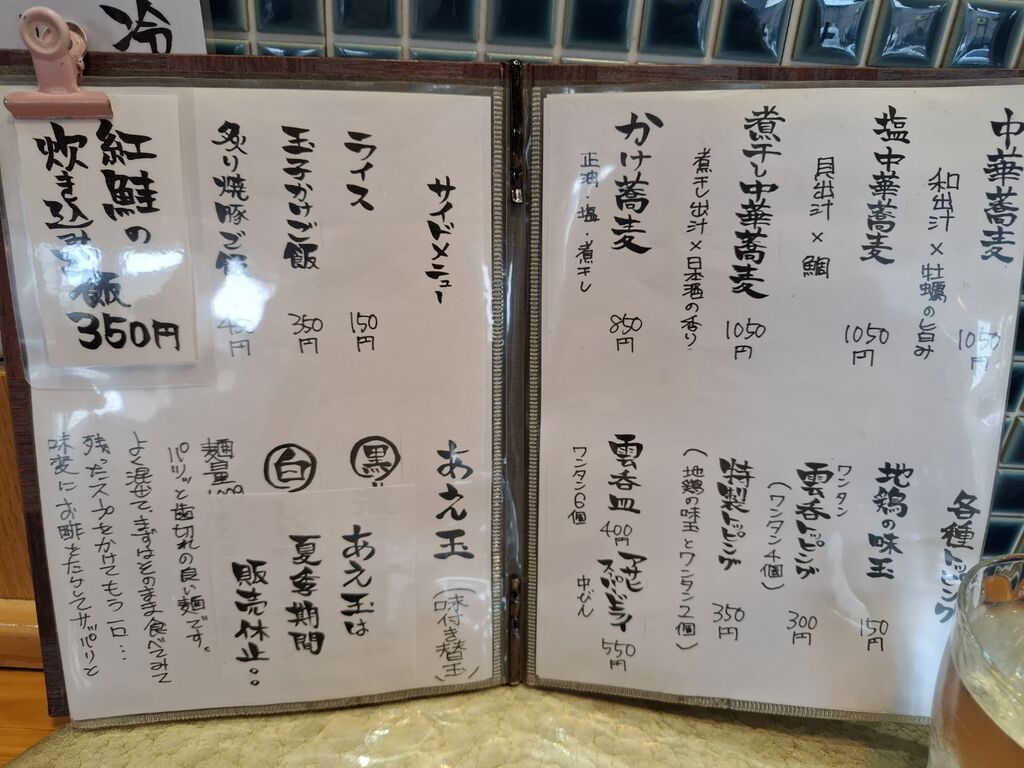 中華蕎麦
和出汁×牡蠣の旨み
1050円
塩中華蕎麦
貝出汁×鯛
1050円
煮干し中華蕎麦
煮干し出汁×日本酒の香り
1050円
かけ蕎麦
正油・塩・煮干し
850円
各種トッピング
地鶏の味玉
150円
ワンタン
雲呑トッピング
(ワンタン4個)
300円
特製トッピング
(地鶏の味玉とワンタン2個)
350円
雲呑皿
ワンタン6個
400円
アサヒスーパードライ
中びん
550円
サイドメニュー
ライス
150円
玉子かけご飯
350円
炙り焼豚ご飯
450円
紅鮭の
炊き込み
飯
350円
あえ玉
(味付き替玉)
黒
白
あえ玉は
夏季期間
販売休止。。
麺量
パツッと歯切れの良い麺です。
よく混ぜて、まずはそのまま食べてみて
残ったスープをかけてもう一口…
味変にお酢をたらしてサッパリと
冷